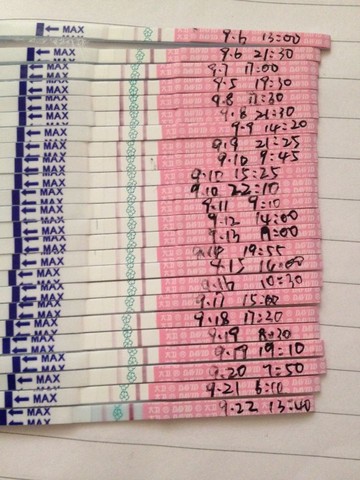 ← MAX 9.6 13:00
← MAX 9.6 21:30
← MAX 9.7 17:00
← MAX 9.5 19:30
← MAX 9.8 17:30
← MAX 9.8 21:30
← MAX 9.9 14:20
← MAX 9.9 21:25
← MAX 9.10 9:45
← MAX 9.10 15:25
← MAX 9.10 22:10
← MAX 9.11 9:10
← MAX 9.12 14:00
← MAX 9.13
← MAX 19:55
← MAX
← MAX 10:30
← MAX 9.17 15:00
← MAX 9.18 17:20
← MAX 9.19
← MAX 9.19 19:10
← MAX 9.20 7:50
← MAX 9.21
← MAX 9.22 13:40